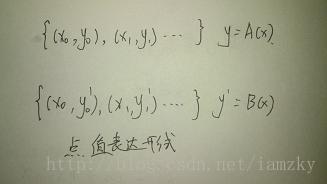 {(x₀,y₀),(x₁,y₁)⋯} y=A(x).
{(x₀,y₀'),(x₁,y₁')⋯⋯} y'=B(x)
点值表达形式
http://blog.csdn.net/iamzky